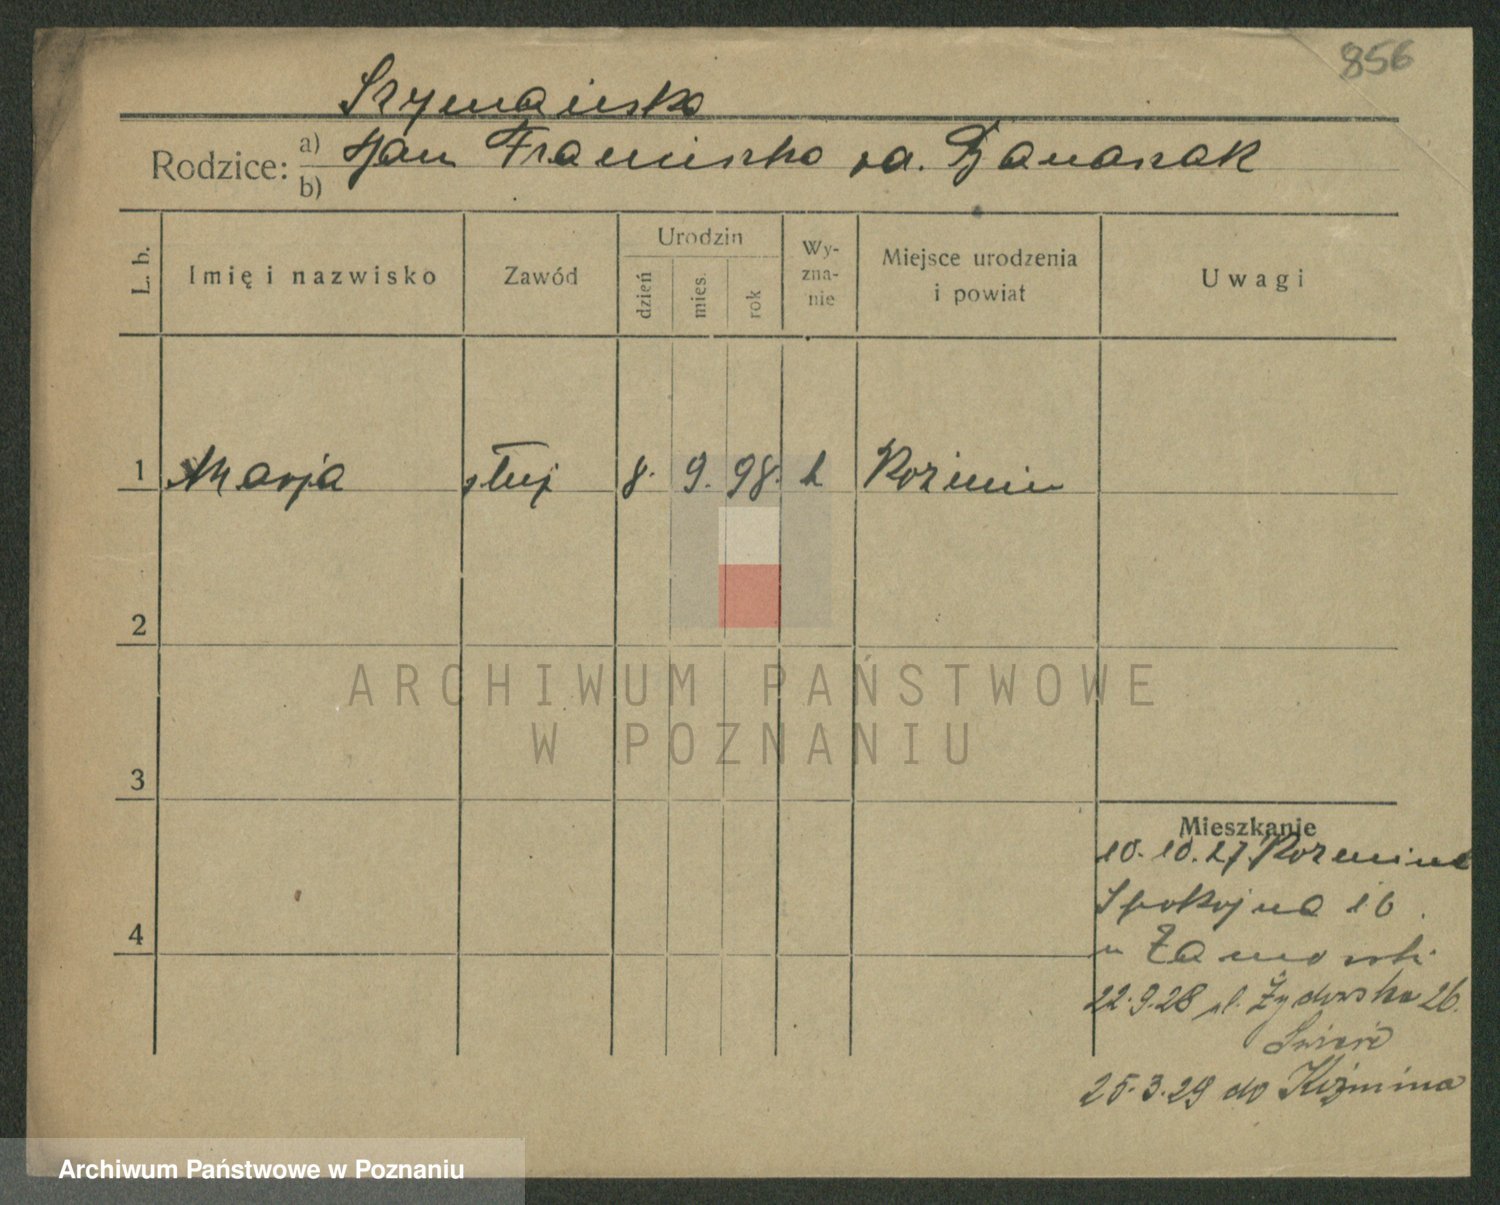 856
Szymańska
Rodzice: a) Jan Franciszka za. Banaszak
b)
L. b. Imię i nazwisko Zawód Urodzin dzień mies. rok Wy-zna-nie Miejsce urodzenia i powiat Uwagi
1 Marja służ 8. 9. 98. k Koźmin
2
3
4
Mieszkanie
10.10.27 Koźmina
Spokojna 16
u
22.9.28 ul. Żydowska 26.
25.3.29 do Koźmina
ARCHIWUM PAŃSTWOWE
W POZNANIU
Archiwum Państwowe w Poznaniu